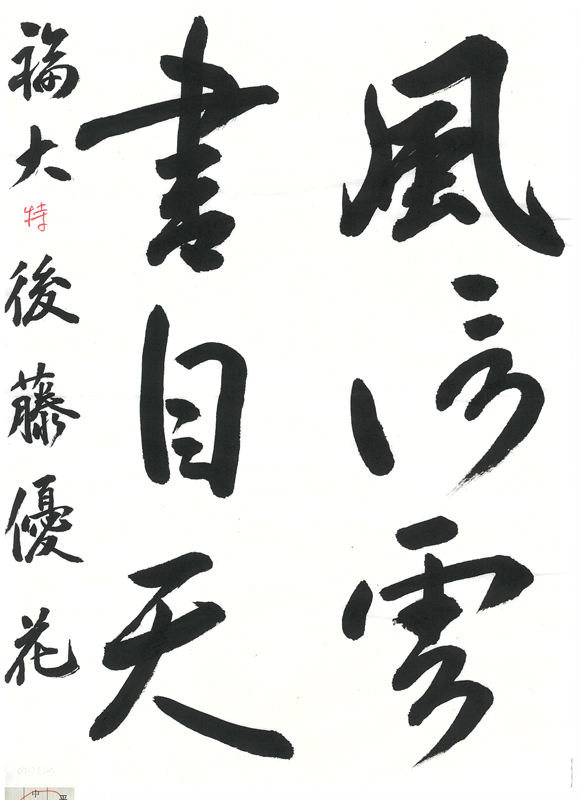 風信雲
書自天
福大 特 後藤優花
中